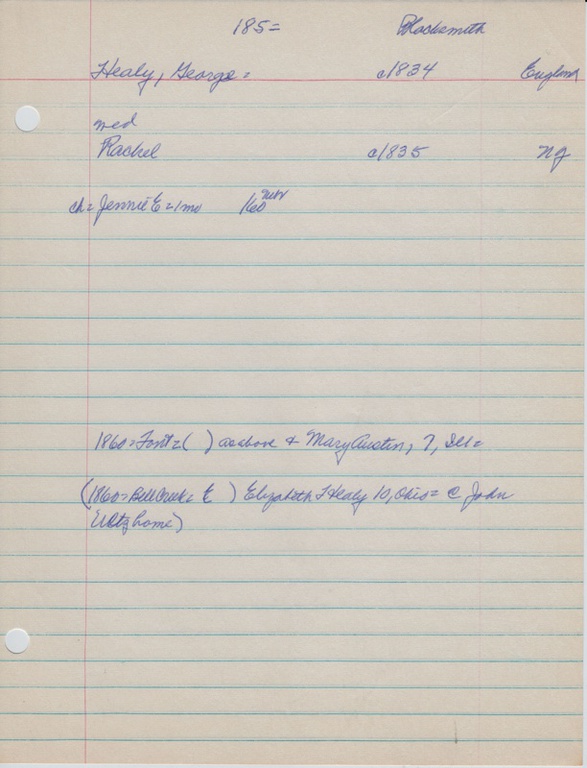 185= Blacksmith
Healy, George = c1834 England
med
Rachel c1835 NJ
ch = Jennie E = 1 mo 160 Nebr
1860 = Font = ( ) as above & Mary Austin, 7, Ill =
(1860 = Bell Creek = E ) Elizabeth J Healy 10, Ohio = C John
home)